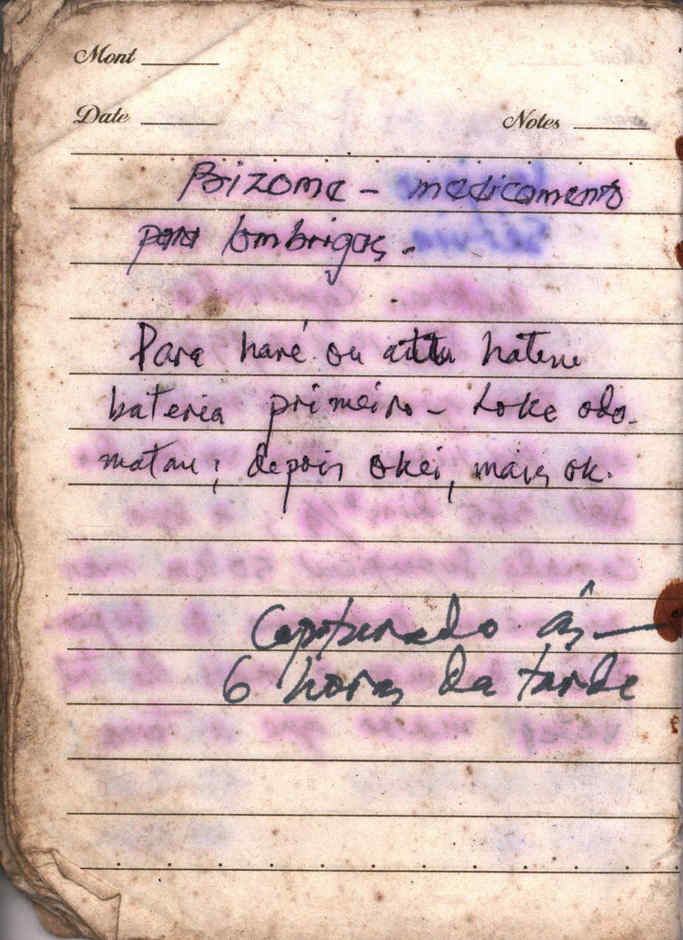 Mont
Date Notes
Bizome - medicamento
para lombrigas.
Para haré ou hatene
bateria primeiro - Loke odo-
matan; depois okei, mais ok.
Capturado ás
6 horas da tarde